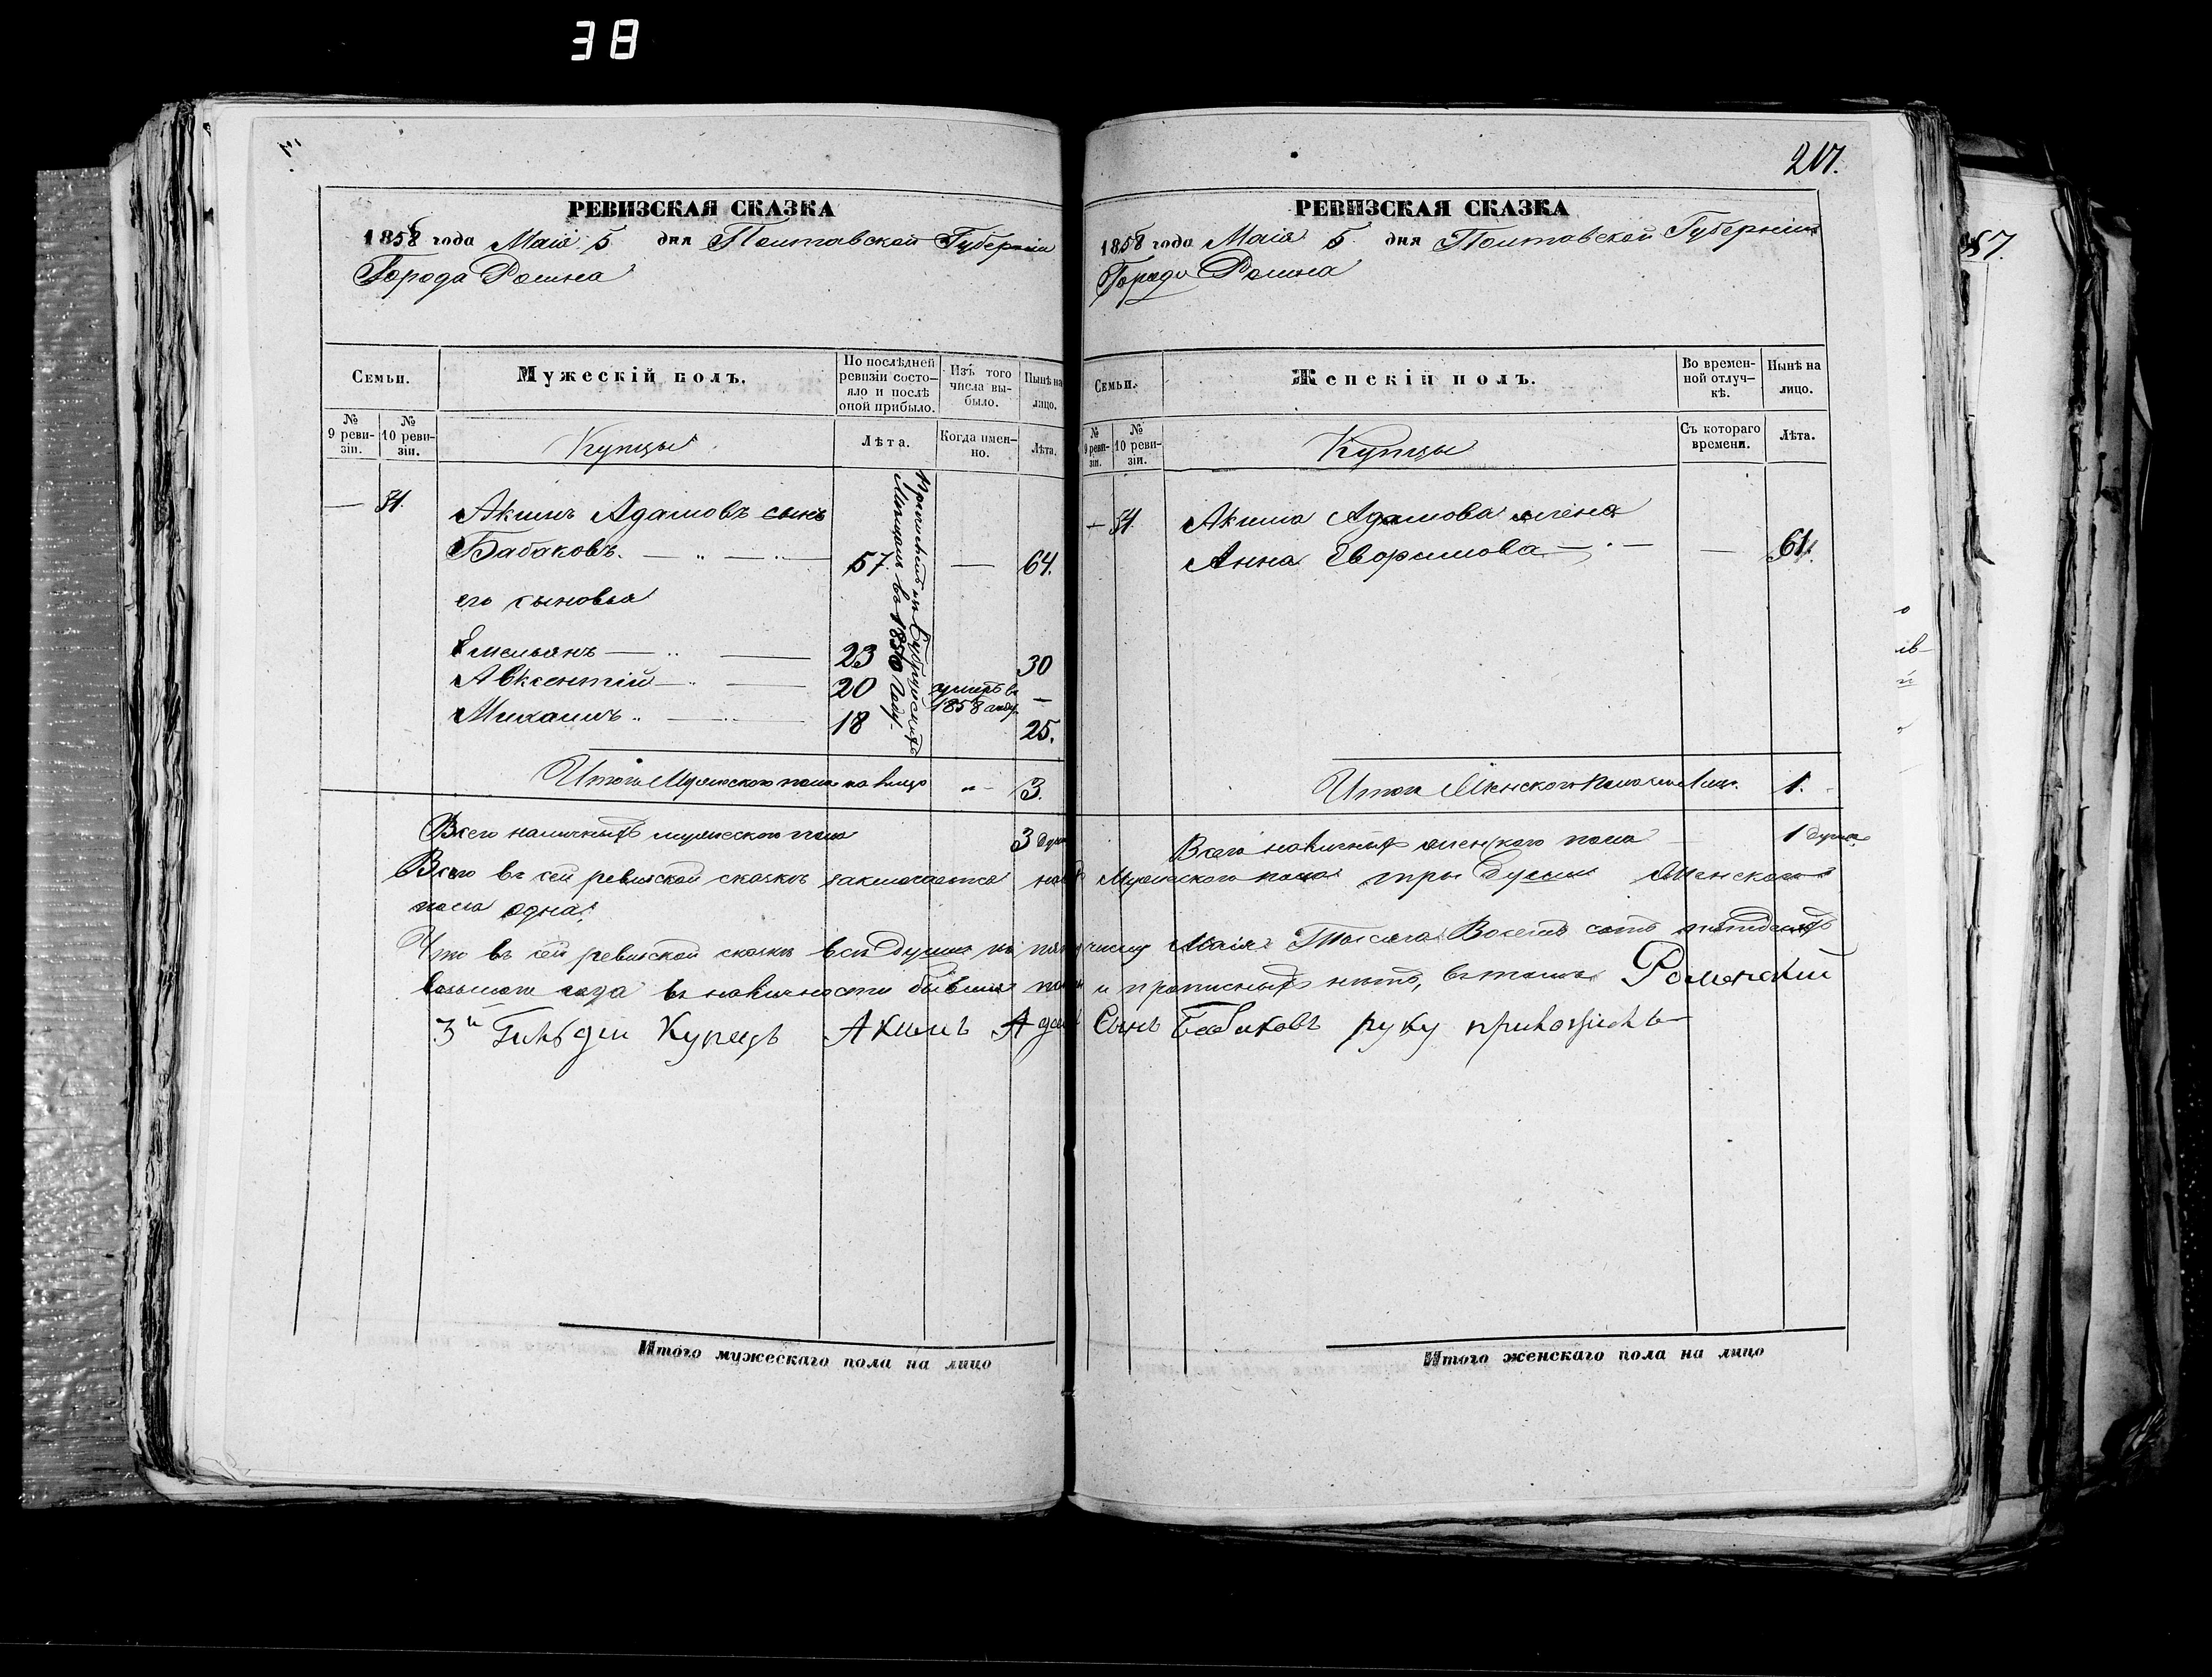 38
РЕВИЗСКАЯ СКАЗКА
1858 года Маія 5 дня Полтавской Губерніи
Города Ромна
Семьи.
Мужескій полъ.
По послѣдней ревизіи состо-
яло и послѣ оной прибыло.
Изъ того числа вы-
было.
Нынѣ на лицо.
№ 9 реви-
зіи.
№ 10 реви-
зіи.
Купцы
Лѣта.
Когда имен-
но.
Лѣта.
— 51. Акимъ Адамовъ сынъ
Бабаковъ. — " — " — 57. — 64.
его сыновья
Емельянъ — " — 23 30
Авксентій — " — 20 умеръ въ 1858 году. —
Михаилъ " — " — 18 25.
Мѣщанъ въ 1850 году
Итого Мужескаго пола на лицо " 3.
Всего наличныхъ мужескаго пола 3 души
РЕВИЗСКАЯ СКАЗКА
217.
1858 года Маія 5 дня Полтавской Губерніи
Города Ромна
Семьи.
Женскій полъ.
Во времен-
ной отлуч-
кѣ.
Нынѣ на лицо.
№ 9 реви-
зіи.
№ 10 реви-
зіи.
Купцы
Съ котораго времени.
Лѣта.
— 51. Акима Адамова жена
Анна — " — — 61.
Итого Женского пола на лицо 1.
Всего наличныхъ женскаго пола 1 душа
Всего въ сей ревизской сказкѣ заключается Мужескаго пола три души Женскаго
пола одна.
Что въ сей ревизской сказкѣ всѣ души къ числу Маія Тысяча Восемь сотъ пятдесятъ
восьмого года въ наличности бывшіе и прописныхъ нѣтъ, въ томъ Роменскій
3й Гильдіи Купецъ Акимъ Адам Сынъ Бабаковъ руку приложилъ
Итого мужескаго пола на лицо
Итого женскаго пола на лицо